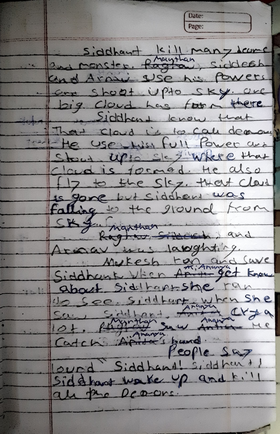 Date:
Page:
Siddhant kill many
and monster. Manthan Siddesh
and Arnav use his Powers
and Shoot upto sky and
big Cloud has form there
Siddhant know that
That cloud is to call demons
He use full Power and
Shout upto sky where that
Cloud is formed. He also
fly to the Sky. that Cloud
is gone but Siddhant was
falling to the ground from
sky.
Manthan and
Arnav was laughting.
Mukesh ran and save
Siddhant when get know
about Siddhant she ran
to see Siddhart. when she
saw Siddhant, Cry a
lot. saw He
Catch hand
People Say
loud "Siddhant! Siddhant!
Siddhant wake up and kill
all the Demons.